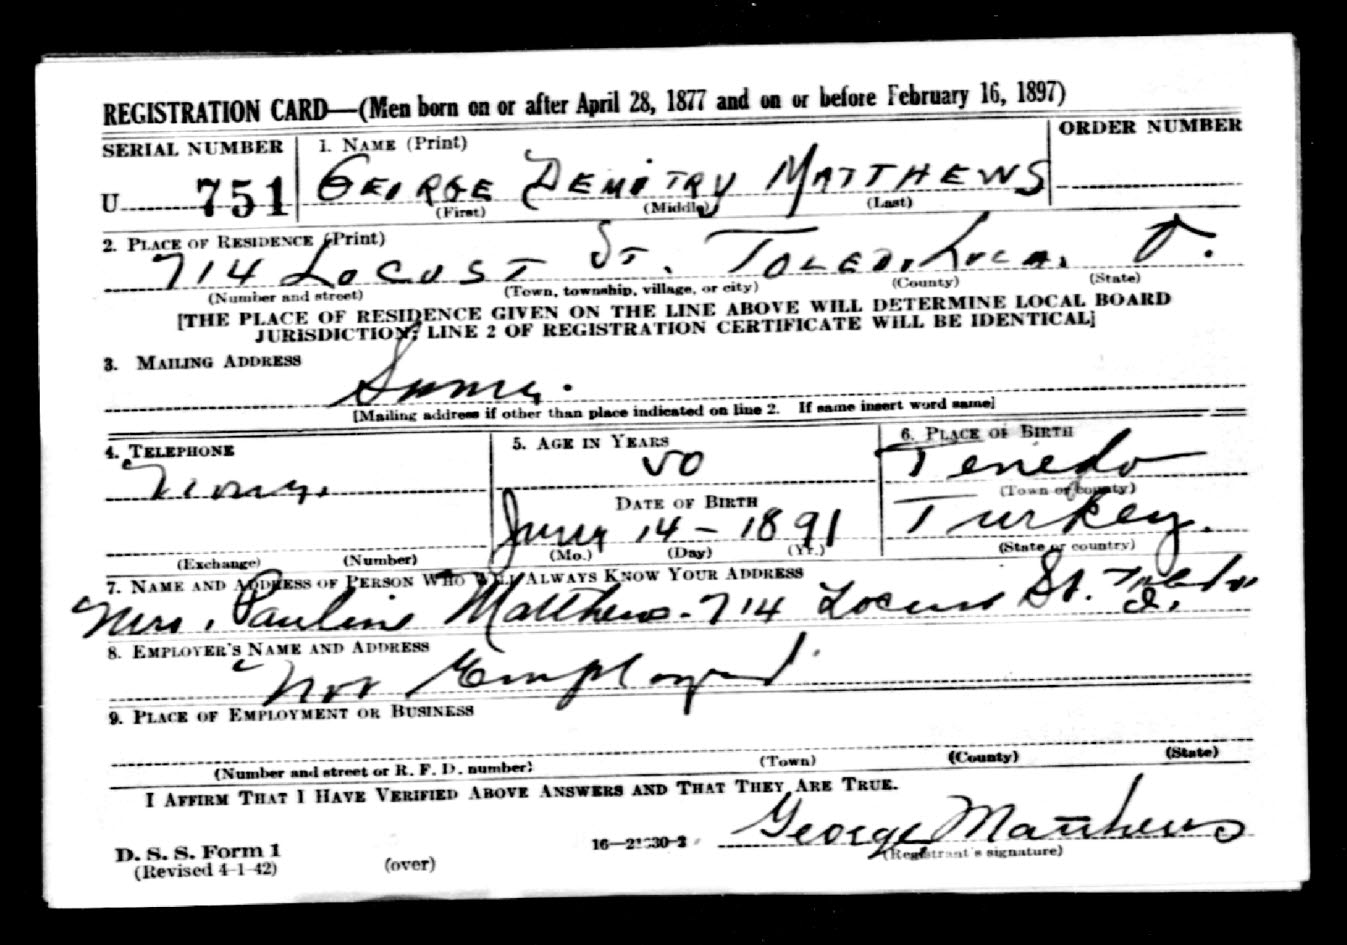 REGISTRATION CARD—(Men born on or after April 28, 1877 and on or before February 16, 1897)
SERIAL NUMBER
1. NAME (Print)
ORDER NUMBER
U 751
GEORGE DEMITRY MATTHEWS
(First) (Middle) (Last)
2. PLACE OF RESIDENCE (Print)
714 LOCUST ST. TOLEDO, LUCA. O.
(Number and street) (Town, township, village, or city) (County) (State)
[THE PLACE OF RESIDENCE GIVEN ON THE LINE ABOVE WILL DETERMINE LOCAL BOARD
JURISDICTION; LINE 2 OF REGISTRATION CERTIFICATE WILL BE IDENTICAL]
3. MAILING ADDRESS
Same.
[Mailing address if other than place indicated on line 2. If same insert word same]
4. TELEPHONE
None.
(Exchange) (Number)
5. AGE IN YEARS
50
DATE OF BIRTH
14 - 1891
(Mo.) (Day) (Yr.)
6. PLACE OF BIRTH
Tenedo
(Town or county)
Turkey.
(State or country)
7. NAME AND ADDRESS OF PERSON WHO WILL ALWAYS KNOW YOUR ADDRESS
Mrs. Pauline Matthews - 714 Locust St. Toledo O.
8. EMPLOYER'S NAME AND ADDRESS
Not Employed.
9. PLACE OF EMPLOYMENT OR BUSINESS
(Number and street or R. F. D. number) (Town) (County) (State)
I AFFIRM THAT I HAVE VERIFIED ABOVE ANSWERS AND THAT THEY ARE TRUE.
George Matthews
(Registrant's signature)
D. S. S. Form 1
(Revised 4-1-42)
(over)